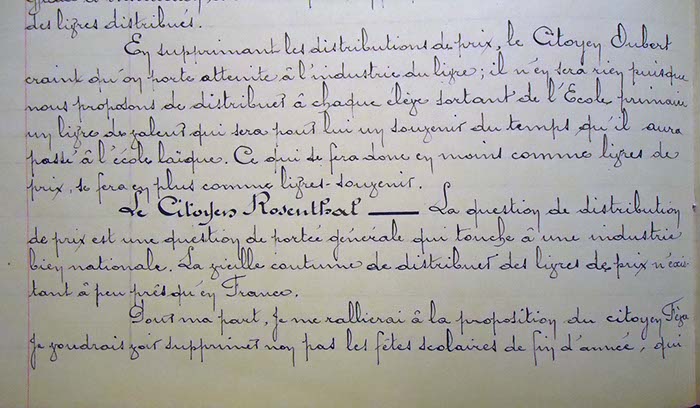 des livres distribués.
En supprimant les distributions de prix, le Citoyen Dubert
craint qu'on porte atteinte à l'industrie du livre ; il n'en sera rien puisque
nous proposons de distribuer à chaque élève sortant de l'Ecole primaire
un livre de valeur qui sera pour lui un souvenir du temps qu'il aura
passé à l'école laïque. Ce qui se fera donc en moins comme livres de
prix, se fera en plus comme livres-souvenir.
Le Citoyen Rosenthal — La question de distribution
de prix est une question de portée générale qui touche à une industrie
bien nationale. La vieille coutume de distribuer des livres de prix n'exis-
tant à peu près qu'en France.
Pour ma part, je me rallierai à la proposition du citoyen
Je voudrais voir supprimer non pas les fêtes scolaires de fin d'année, qui